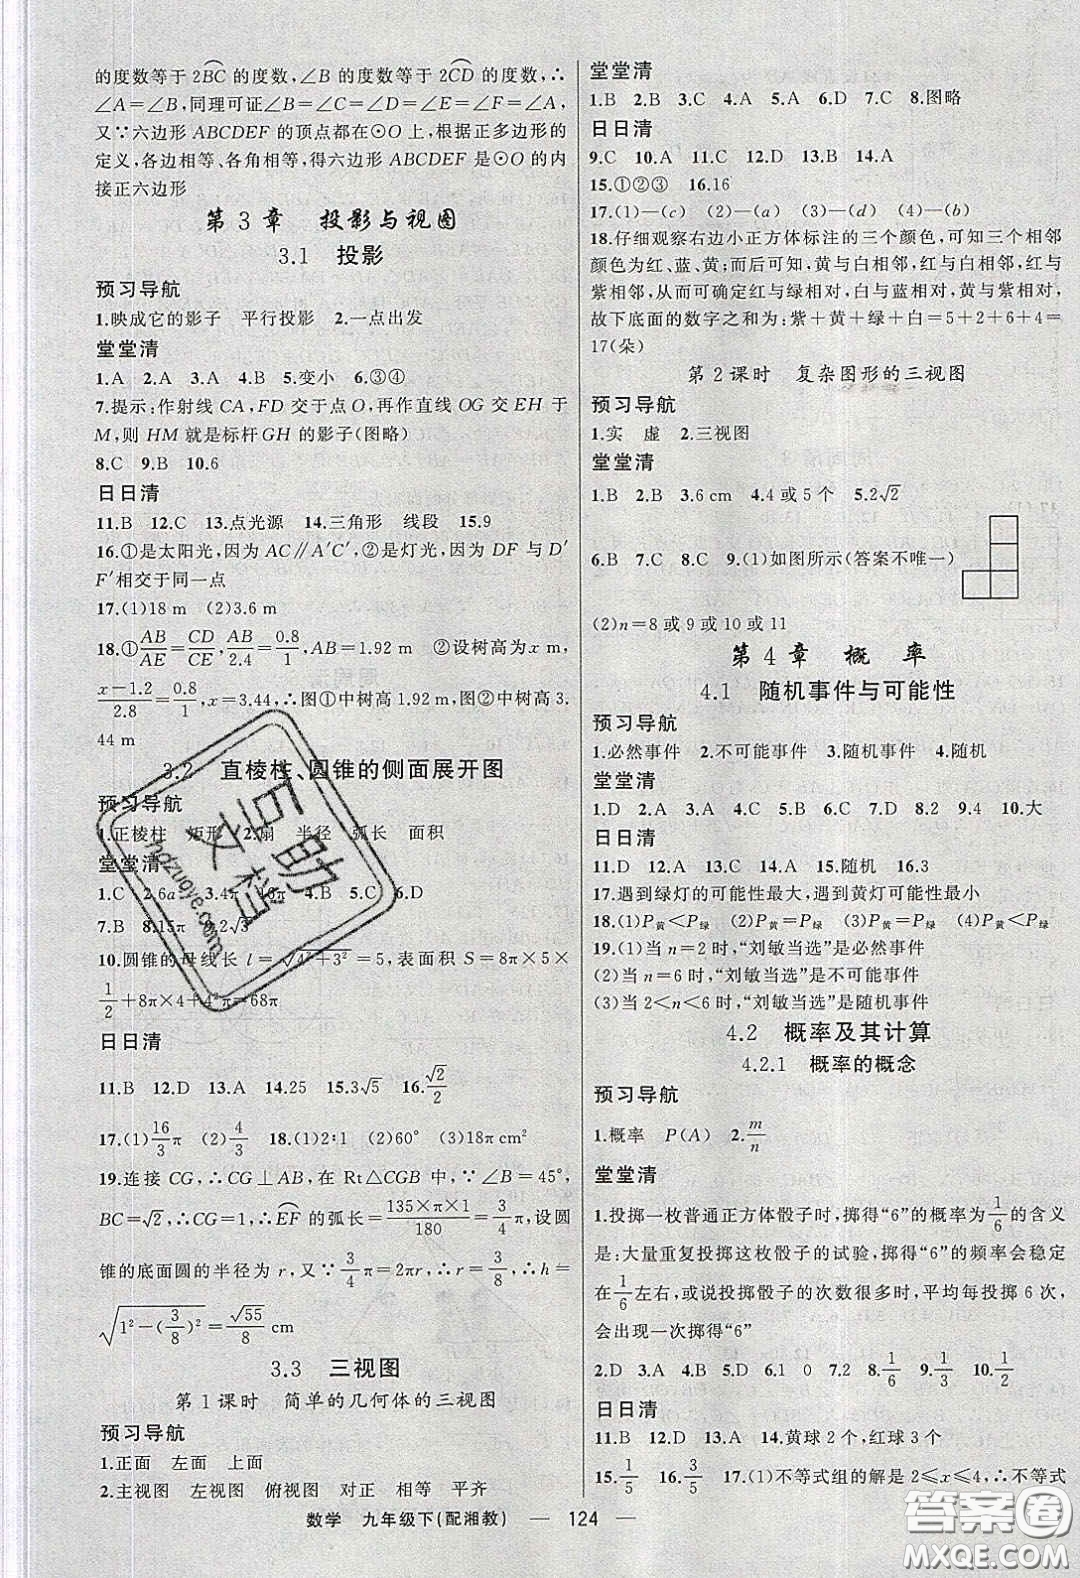 的度数等于2BC的度数,∠B的度数等于2CD的度数,∴
∠A=∠B,同理可证∠B=∠C=∠D=∠E=∠F=∠A,
又∵六边形ABCDEF的顶点都在⊙O上,根据正多边形的
定义,各边相等、各角相等,得六边形ABCDEF是⊙O的内
接正六边形
第3章 投影与视图
3.1 投影
预习导航
1.映成它的影子 平行投影 2.一点出发
堂堂清
1.A 2.A 3.A 4.B 5.变小 6.③④
7.提示:作射线CA,FD交于点O,再作直线OG交EH于
M,则HM就是标杆GH的影子(图略)
8.C 9.B 10.6
日日清
11.B 12.C 13.点光源 14.三角形 线段 15.9
16.①是太阳光,因为AC∥A′C′,②是灯光,因为DF与D′
F′相交于同一点
17.(1)18 m (2)3.6 m
18.①AB/AE=CD/CE,AB/2.4=0.8/1,AB=1.92 m ②设树高为x m,
(x-1.2)/2.8=0.8/1,x=3.44,∴图①中树高1.92 m,图②中树高3.
44 m
3.2 直棱柱、圆锥的侧面展开图
预习导航
1.正棱柱 矩形 2.扇 半径 弧长 面积
堂堂清
1.C 2.6a 3.4π 16π 4.B 5.C 6.D
7.B 8.15π 9.2√3
10.圆锥的母线长l=√(4²+3²)=5,表面积S=8π×5×
1/2+8π×4+4²π=68π
日日清
11.B 12.D 13.A 14.25 15.3√5 16.√2/2
17.(1)16/3π (2)4/3 18.(1)2∶1 (2)60° (3)18π cm²
19.连接CG,∴CG⊥AB,在Rt△CGB中,∵∠B=45°,
BC=√2,∴CG=1,∴EF的弧长=(135×π×1)/180=3/4π,设圆
锥的底面圆的半径为r,又∵3/4π=2πr,∴r=3/8,∴h=
√(1²-(3/8)²)=√55/8 cm
3.3 三视图
第1课时 简单的几何体的三视图
预习导航
1.正面 左面 上面
2.主视图 左视图 俯视图 对正 相等 平齐
堂堂清
1.B 2.B 3.C 4.A 5.A 6.D 7.C 8.图略
日日清
9.C 10.A 11.C 12.D 13.B 14.A
15.①②③ 16.16
17.(1)—(c) (2)—(a) (3)—(d) (4)—(b)
18.仔细观察右边小正方体标注的三个颜色,可知三个相邻
颜色为红、蓝、黄;而后可知,黄与白相邻,红与白相邻,红与
紫相邻,从而可确定红与绿相对,白与蓝相对,黄与紫相对,
故下底面的数字之和为:紫+黄+绿+白=5+2+6+4=
17(朵)
第2课时 复杂图形的三视图
预习导航
1.实 虚 2.三视图
堂堂清
1.B 2.B 3.6 cm 4.4或5个 5.2√2
6.B 7.B 8.C 9.(1)如图所示(答案不唯一)
(2)n=8或9或10或11
第4章 概 率
4.1 随机事件与可能性
预习导航
1.必然事件 2.不可能事件 3.随机事件 4.随机
堂堂清
1.D 2.A 3.A 4.C 5.B 6.C 7.D 8.2 9.4 10.大
日日清
11.D 12.A 13.C 14.A 15.随机 16.3
17.遇到绿灯的可能性最大,遇到黄灯可能性最小
18.(1)P黄<P绿 (2)P黄=P绿 (3)P黄>P绿 (4)P黄<P绿
19.(1)当n=2时,“刘敏当选”是必然事件
(2)当n=6时,“刘敏当选”是不可能事件
(3)当2<n<6时,“刘敏当选”是随机事件
4.2 概率及其计算
4.2.1 概率的概念
预习导航
1.概率 P(A) 2.m/n
堂堂清
1.投掷一枚普通正方体骰子时,掷得“6”的概率为1/6的含义
是:大量重复投掷这枚骰子的试验,掷得“6”的频率会稳定
在1/6左右,或说投掷骰子的次数很多时,平均每投掷6次就
会出现一次掷得“6”
2.D 3.A 4.B 5.D 6.1 0 7.2 8.1/6 9.1/3 10.1/2
日日清
11.B 12.D 13.A 14.黄球2个,红球3个
15.1/5 16.3/5 17.(1)不等式组的解是2≤x≤4,∴不等式
数学 九年级下(配湘教) — 124 —
百助文档
hdzuoye.com
答案圈
MXQE.COM